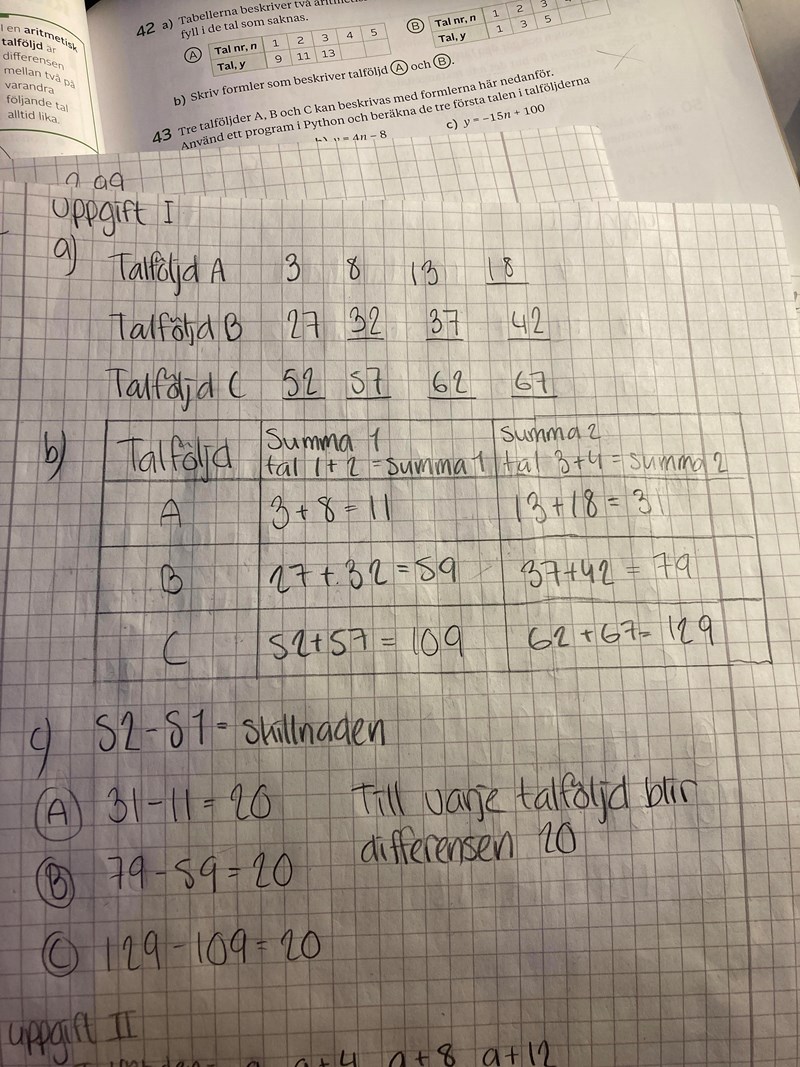 I en aritmetisk
talföljd är
differensen
mellan två på
varandra
följande tal
alltid lika.
42 a) Tabellerna beskriver två
fyll i de tal som saknas.
A Tal nr, n 1 2 3 4 5
Tal, y 9 11 13
B Tal nr, n 1 2 3
Tal, y 1 3 5
b) Skriv formler som beskriver talföljd A och B.
43 Tre talföljder A, B och C kan beskrivas med formlerna här nedanför.
Använd ett program i Python och beräkna de tre första talen i talföljderna
b) y = 4n – 8
c) y = –15n + 100
Uppgift I
a) Talföljd A 3 8 13 18
Talföljd B 27 32 37 42
Talföljd C 52 57 62 67
b) Talföljd Summa 1 Summa 2
tal 1+2 = summa 1 tal 3+4 = summa 2
A 3+8=11 13+18=31
B 27+32=59 37+42=79
C 52+57=109 62+67=129
c) S2-S1= skillnaden
A 31-11=20 Till varje talföljd blir
differensen 20
B 79-59=20
C 129-109=20
Uppgift II
a a+4 a+8 a+12